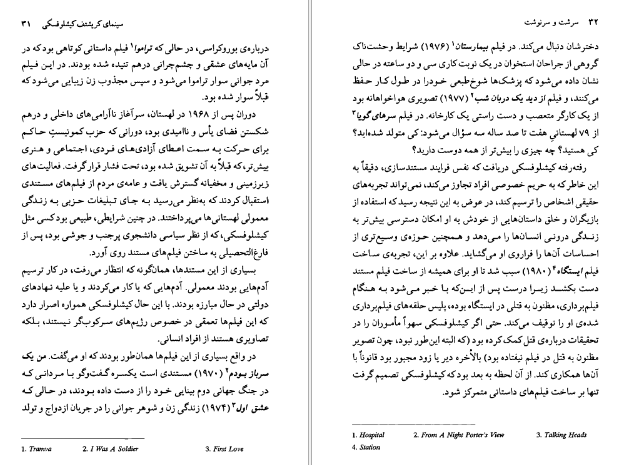 سینمای کریشتف کیشلوفسکی ۳۱
درباره‌ی بوروکراسی، در حالی که تراموا¹ فیلم داستانی کوتاهی بود که در
آن مایه‌های عشقی و چشم‌چرانی درهم تنیده شده بودند. در این فیلم
مرد جوانی سوار تراموا می‌شود و سپس مجذوب زن زیبایی می‌شود که
قبلاً سوار شده بود.
دوران پس از ۱۹۶۸ در لهستان، سرآغاز ناآرامی‌های داخلی و درهم
شکستن فضای یأس و ناامیدی بود، دورانی که حزب کمونیست حاکم
برای حرکت به سمت اعطای آزادی‌های فردی، اجتماعی و هنری
بیش‌تر، که قبلاً به آن تشویق شده بود، تحت فشار قرار گرفت. فعالیت‌های
زیرزمینی و مخفیانه گسترش یافت و عامه‌ی مردم از فیلم‌های مستندی
استقبال کردند که به‌نظر می‌رسید به جای تبلیغات حزبی به زندگی
معمولی لهستانی‌ها می‌پرداختند. در چنین شرایطی، طبیعی بود کسی مثل
کیشلوفسکی، که از نظر سیاسی دانشجوی پرجنب و جوشی بود، پس از
فارغ‌التحصیلی به ساختن فیلم‌های مستند روی آورد.
بسیاری از این مستندها، همان‌گونه که انتظار می‌رفت، در کار ترسیم
آدم‌هایی بودند معمولی. آدم‌هایی که یا کار می‌کردند و یا علیه نهادهای
دولتی در حال مبارزه بودند. با این حال کیشلوفسکی همواره اصرار دارد
که این فیلم‌ها تعمقی در خصوص رژیم‌های سرکوب‌گر نیستند، بلکه
تصاویری هستند از افراد انسانی.
در واقع بسیاری از این فیلم‌ها همان‌طور بودند که او می‌گفت. من یک
سرباز بودم² (۱۹۷۰) مستندی است یکسره گفت‌وگو با مردانی که
در جنگ جهانی دوم بینایی خود را از دست داده بودند، در حالی که
عشق اول³ (۱۹۷۴) زندگی زن و شوهر جوانی را در جریان ازدواج و تولد
1. Tramva 2. I Was A Soldier 3. First Love
۳۲ سرشت و سرنوشت
دخترشان دنبال می‌کند. در فیلم بیمارستان¹ (۱۹۷۶) شرایط وحشت‌ناک
گروهی از جراحان استخوان در یک نوبت کاری سی و دو ساعته در حالی
نشان داده می‌شود که پزشک‌ها شوخ‌طبعی خود را در طول کار حفظ
می‌کنند، و فیلم از دید یک دربان شب² (۱۹۷۷) تصویری هواخواهانه بود
از یک کارگر متعصب و دست راستی یک کارخانه. در فیلم سرهای گویا³
از ۷۹ لهستانیِ هفت تا صد ساله سه سؤال می‌شود: کی متولد شده‌اید؟
کی هستید؟ چه چیزی را بیش‌تر از همه دوست دارید؟
رفته‌رفته کیشلوفسکی دریافت که نفس فرایند مستندسازی، دقیقاً به
این خاطر که به حریم خصوصی افراد تجاوز می‌کند، نمی‌تواند تجربه‌های
حقیقی اشخاص را ترسیم کند، در عوض به این نتیجه رسید که استفاده از
بازیگران و خلق داستان‌هایی از خودش به او امکان دسترسی بیش‌تر به
زندگی درونی انسان‌ها را می‌دهد و همچنین حوزه‌ی وسیع‌تری از
احساسات آن‌ها را فراروی او می‌گشاید. علاوه بر این، تجربه‌ی ساخت
فیلم ایستگاه⁴ (۱۹۸۰) سبب شد تا او برای همیشه از ساخت فیلم مستند
دست بکشد زیرا درست پس از این‌که با خبر می‌شود به هنگام
فیلم‌برداری، مظنون به قتلی در ایستگاه بوده، پلیس حلقه‌های فیلم‌برداری
شده‌ی او را توقیف می‌کند. حتی اگر کیشلوفسکی سهواً مأموران را در
تحقیقات درباره‌ی قتل کمک کرده بود (که البته این‌طور نبود، چون تصویر
مظنون به قتل در فیلم نیفتاده بود) بالأخره دیر یا زود مجبور بود قانوناً با
آن‌ها همکاری کند. از آن لحظه به بعد بود که کیشلوفسکی تصمیم گرفت
تنها بر ساخت فیلم‌های داستانی متمرکز شود.
1. Hospital 2. From A Night Porter's View 3. Talking Heads
4. Station